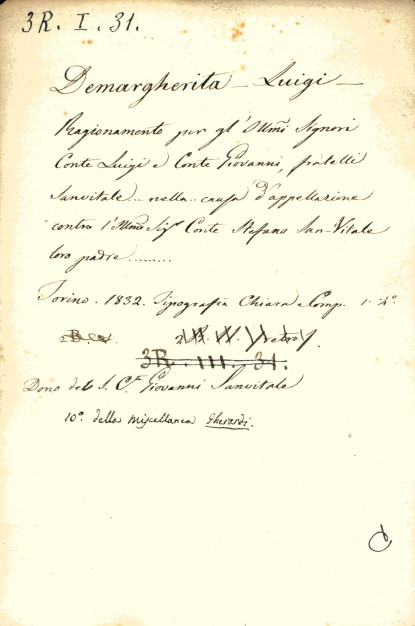 3R. I. 31.
Demargherita - Luigi -
Ragionamento per gl'Illmi Signori
Conte Luigi e Conte Giovanni, fratelli
Sanvitale... nella causa d'appellazione
contro l'Illmo Sigr Conte Stefano San-Vitale
loro padre.........
Torino. 1832. Tipografia Chiara e Comp. 1. 4.º
3R. III. 31.
Dono del S. Cte Giovanni Sanvitale
10º. della Miscellanea Gherardi.